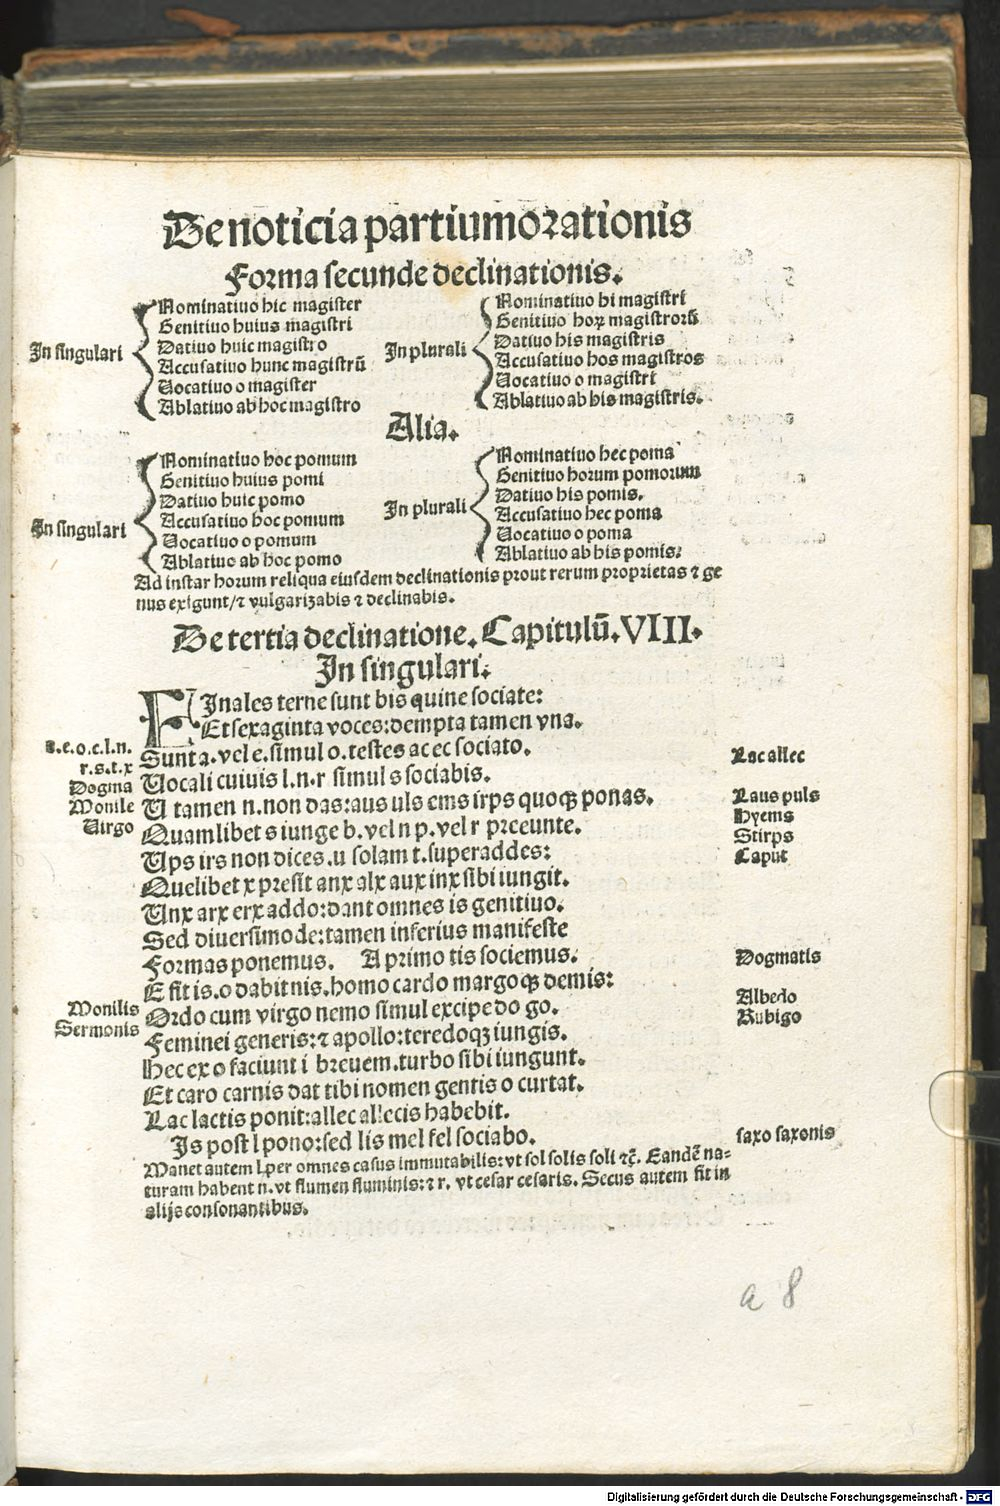 De noticia partium orationis
Forma secunde declinationis.
In singulari
Nominatiuo hic magister
Genitiuo huius magistri
Datiuo huic magistro
Accusatiuo hunc magistrũ
Uocatiuo o magister
Ablatiuo ab hoc magistro
In plurali
Nominatiuo hi magistri
Genitiuo hoꝝ magistrorũ
Datiuo his magistris
Accusatiuo hos magistros
Uocatiuo o magistri
Ablatiuo ab his magistris.
Alia.
In singulari
Nominatiuo hoc pomum
Genitiuo huius pomi
Datiuo huic pomo
Accusatiuo hoc pomum
Uocatiuo o pomum
Ablatiuo ab hoc pomo
In plurali
Nominatiuo hec poma
Genitiuo horum pomorum
Datiuo his pomis.
Accusatiuo hec poma
Uocatiuo o poma
Ablatiuo ab his pomis.
Ad instar horum reliqua eiusdem declinationis prout rerum proprietas ⁊ ge
nus exigunt/⁊ vulgarizabis ⁊ declinabis.
De tertia declinatione. Capitulũ. VIII.
In singulari.
FInales terne sunt bis quine sociate:
Et sexaginta voces: dempta tamen vna.
a.e.o.c.l.n.
r.s.t.x
Dogma
Monile
Uirgo
Sunt a. vel e. simul o. testes ac ec sociato.
Lac allec
Uocali cuiuis l.n.r simul s sociabis.
U tamen n. non das: aus uls ems irps quoqꝫ ponas.
Laus puls
Hyems
Quamlibet s iunge b. vel n p. vel r preeunte.
Stirps
Ups irs non dices. u solam t. superaddes:
Caput
Quelibet x presit anx alx aux inx sibi iungit.
Unx arx erx addo: dant omnes is genitiuo.
Sed diuersimode: tamen inferius manifeste
Formas ponemus. A primo tis sociemus.
Dogmatis
E fit is. o dabit nis. homo cardo margo qꝫ demis:
Monilis
Sermonis
Ordo cum virgo nemo simul excipe do go.
Albedo
Rubigo
Feminei generis: ⁊ apollo: teredoqꝫ iungis.
Hec ex o faciunt i breuem. turbo sibi iungunt.
Et caro carnis dat tibi nomen gentis o curtat.
Lac lactis ponit: allec allecis habebit.
Is post l pono: sed lis mel fel sociabo.
saxo saxonis
Manet autem l per omnes casus immutabilis: vt sol solis soli ⁊c̃. Eandẽ na-
turam habent n. vt flumen fluminis: ⁊ r. vt cesar cesaris. Secus autem fit in
alijs consonantibus.
a 8
Digitalisierung gefördert durch die Deutsche Forschungsgemeinschaft - DFG